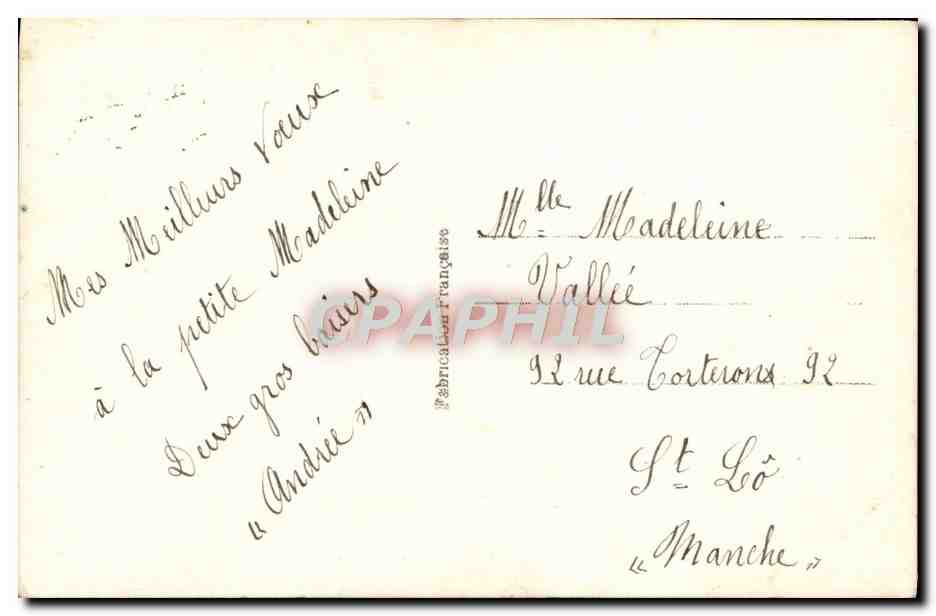 Mes Meilleurs Vœux
à la petite Madeleine
Deux gros baisirs
« Andrée »
Fabrication Française
CPAPHIL
Mlle Madeleine
Vallée
92 rue Torterons 92
St Lô
« Manche »